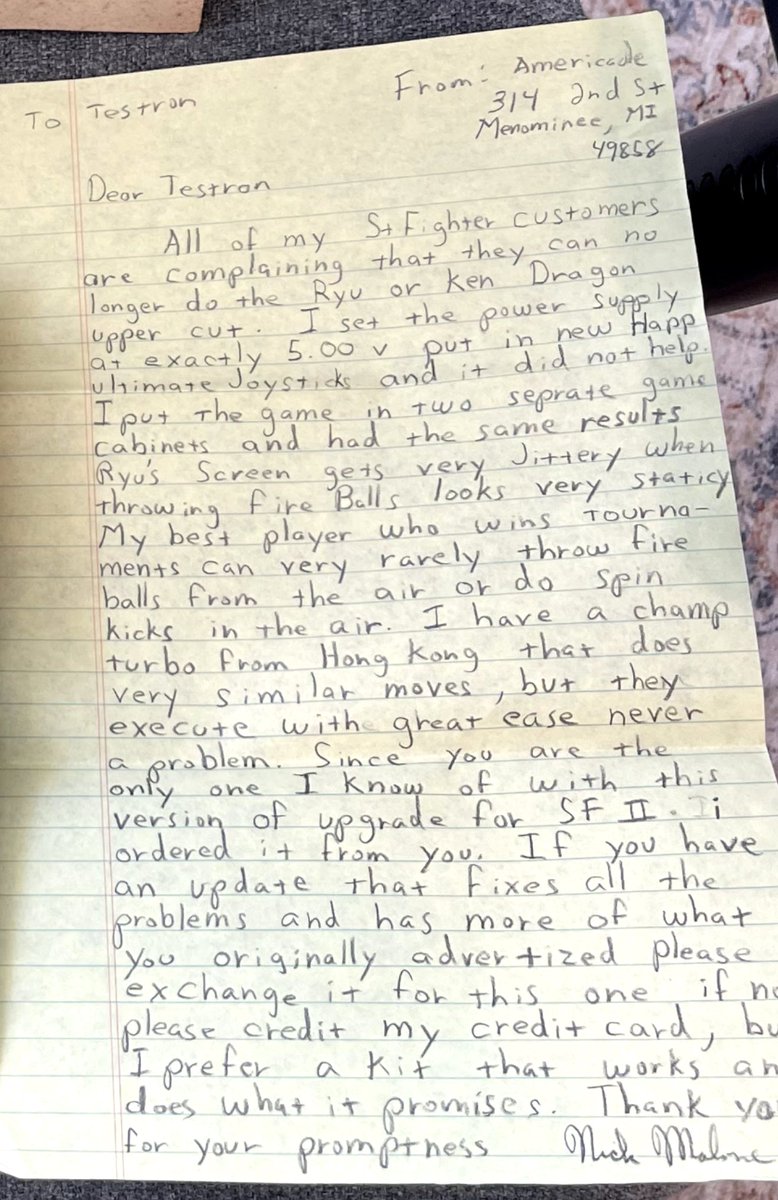 From: Americade
To Testron
314 2nd St
Menominee, MI
49858
Dear Testron
All of my St Fighter customers
are complaining that they can no
longer do the Ryu or Ken Dragon
upper cut. I set the power supply
at exactly 5.00 v put in new Happ
ultimate Joysticks and it did not help.
I put the game in two seprate game
cabinets and had the same results
Ryu's Screen gets very Jittery when
throwing fire Balls looks very staticy
My best player who wins Tourna-
ments can very rarely throw fire
balls from the air or do spin
kicks in the air. I have a champ
turbo from Hong Kong that does
very similar moves, but they
execute with great ease never
a problem. Since you are the
only one I know of with this
version of upgrade for SF II. i
ordered it from you. If you have
an update that fixes all the
problems and has more of what
you originally advertized please
exchange it for this one if no
please credit my credit card, bu
I prefer a kit that works an
does what it promises. Thank yo
for your promptness Nick Malone